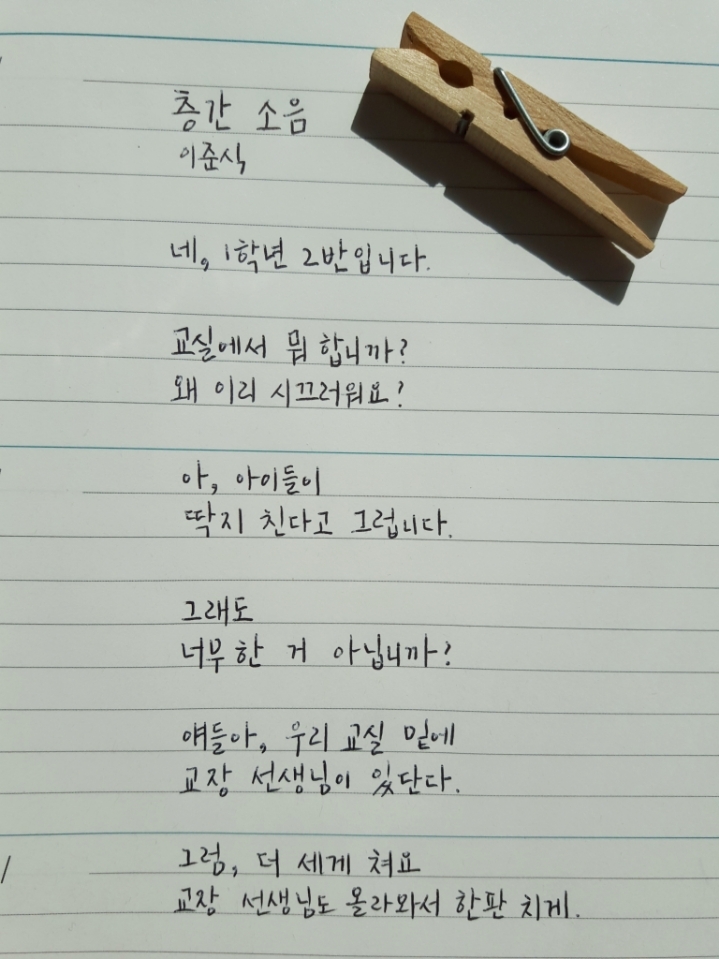 층간 소음
이준식
네, 1학년 2반입니다.
교실에서 뭐 합니까?
왜 이리 시끄러워요?
아, 아이들이
딱지 친다고 그럽니다.
그래도
너무한 거 아닙니까?
얘들아, 우리 교실 밑에
교장 선생님이 있단다.
그럼, 더 세게 쳐요
교장 선생님도 올라와서 한판 치게.